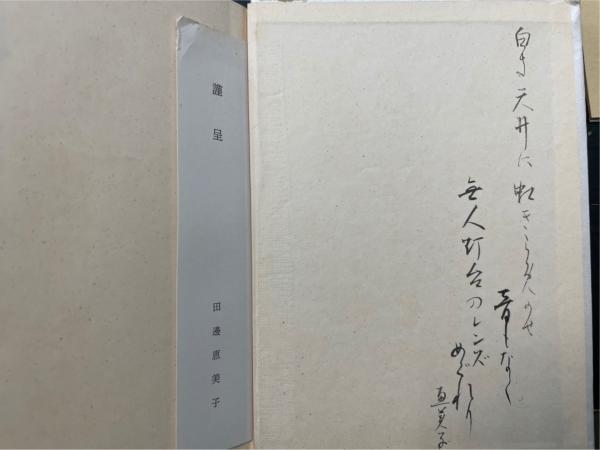 白き天井に虹きらめかせ
音もなく
無人灯台のレンズ
めぐれり
恵美子
謹呈
田邊恵美子